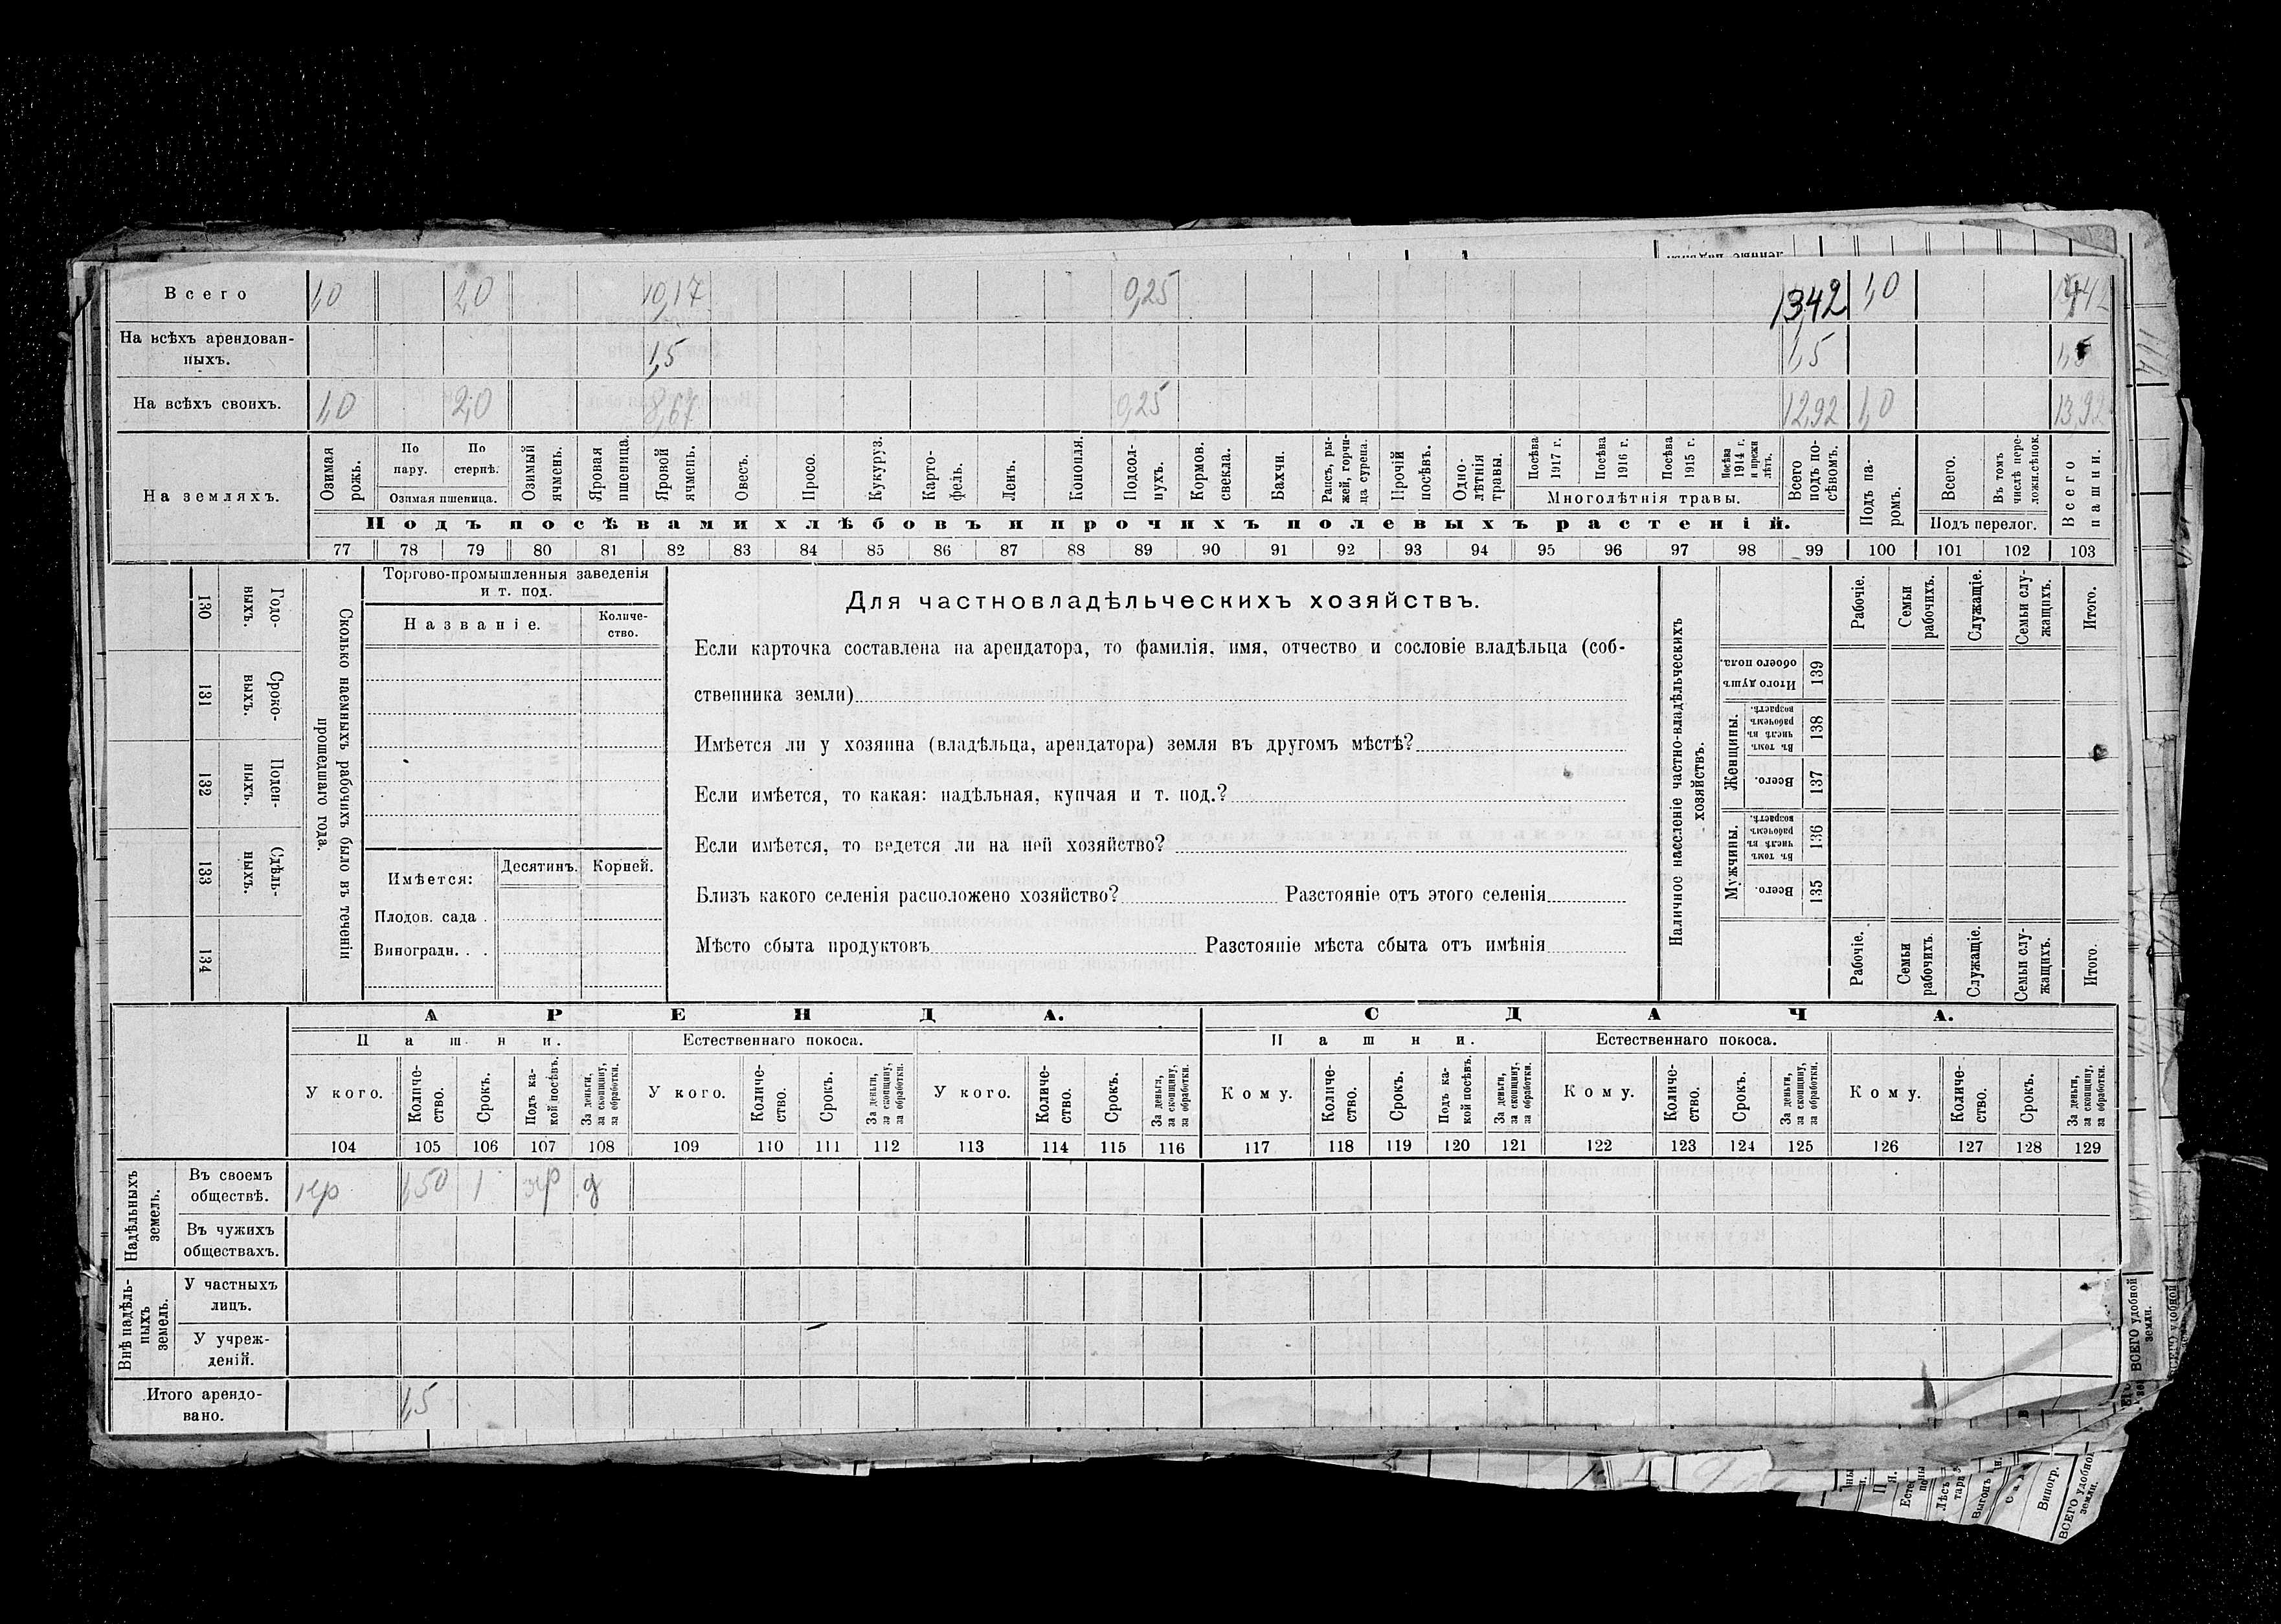 Всего 1,0 2,0 10,17 0,25 13,42 1,0
На всѣхъ арендован-
ныхъ. 1,5 1,5 1,5
На всѣхъ своихъ. 1,0 2,0 8,67 0,25 12,92 1,0 13,92
На земляхъ.
Озимая рожь.
По пару.
По стернѣ.
Озимая пшеница.
Озимый ячмень.
Яровая пшеница.
Яровой ячмень.
Овесъ.
Просо.
Кукуруз.
Карто-
фель.
Ленъ.
Конопля.
Подсол-
нухъ.
Кормов. свекла.
Бахчи.
Рапсъ, ры-
жей, горчи-
ца сурепа.
Прочій посѣвъ.
Одно-
лѣтнія травы.
Посѣва 1917 г.
Посѣва 1916 г.
Посѣва 1915 г.
Посѣва 1914 г. и прежн. лѣтъ.
Многолѣтнія травы.
Всего подъ по-
сѣвомъ.
Подъ па-
ромъ.
Всего.
Въ томъ числѣ пере-
ложн. сѣнок.
Подъ перелог.
Всего пашни.
Подъ посѣвами хлѣбовъ и прочихъ полевыхъ растеній.
77 78 79 80 81 82 83 84 85 86 87 88 89 90 91 92 93 94 95 96 97 98 99 100 101 102 103
130 Годо-
выхъ.
131 Сроко-
выхъ.
132 Поден-
ныхъ.
133 Сдѣль-
ныхъ.
134
Сколько наемныхъ рабочихъ было въ теченіи
прошедшаго года.
Торгово-промышленныя заведенія
и т. под.
Названіе.
Количе-
ство.
Имѣется:
Десятинъ. Корней.
Плодов. сада .
Виноградн. . .
Для частновладѣльческихъ хозяйствъ.
Если карточка составлена на арендатора, то фамилія, имя, отчество и сословіе владѣльца (соб-
ственника земли)
Имѣется ли у хозяина (владѣльца, арендатора) земля въ другомъ мѣстѣ?
Если имѣется, то какая: надѣльная, купчая и т. под.?
Если имѣется, то ведется ли на ней хозяйство?
Близъ какого селенія расположено хозяйство? Разстояніе отъ этого селенія
Мѣсто сбыта продуктовъ Разстояніе мѣста сбыта отъ имѣнія
Наличное населеніе частно-владѣльческихъ
хозяйствъ.
Рабочіе.
Семьи рабочихъ.
Служащіе.
Семьи слу-
жащихъ.
Итого.
Итого душъ обоего пола. 139
Женщины.
Въ томъ числѣ въ рабочемъ возрастѣ. 138
Всего. 137
Мужчины.
Въ томъ числѣ въ рабочемъ возрастѣ. 136
Всего. 135
Рабочіе.
Семьи рабочихъ.
Служащіе.
Семьи слу-
жащихъ.
Итого.
АРЕНДА. СДАЧА.
Пашни. Естественнаго покоса. Пашни. Естественнаго покоса.
У кого.
Количе-
ство.
Срокъ.
Подъ ка-
кой посѣвъ.
За деньги,
за скопщину,
за обработки.
У кого.
Количе-
ство.
Срокъ.
За деньги,
за скопщину,
за обработки.
У кого.
Количе-
ство.
Срокъ.
За деньги,
за скопщину,
за обработки.
Кому.
Количе-
ство.
Срокъ.
Подъ ка-
кой посѣвъ.
За деньги,
за скопщину,
за обработки.
Кому.
Количе-
ство.
Срокъ.
За деньги,
за скопщину,
за обработки.
Кому.
Количе-
ство.
Срокъ.
За деньги,
за скопщину,
за обработки.
104 105 106 107 108 109 110 111 112 113 114 115 116 117 118 119 120 121 122 123 124 125 126 127 128 129
Надѣльныхъ
земель.
Въ своемъ
обществѣ. кр 1,50 1 яр д
Въ чужихъ
обществахъ.
Внѣ надѣль-
ныхъ
земель.
У частныхъ
лицъ.
У учреж-
деній.
Итого арендо-
вано. 1,5
ВСЕГО удобной
земли.
Виногр.
ВСЕГО удобной
земли.